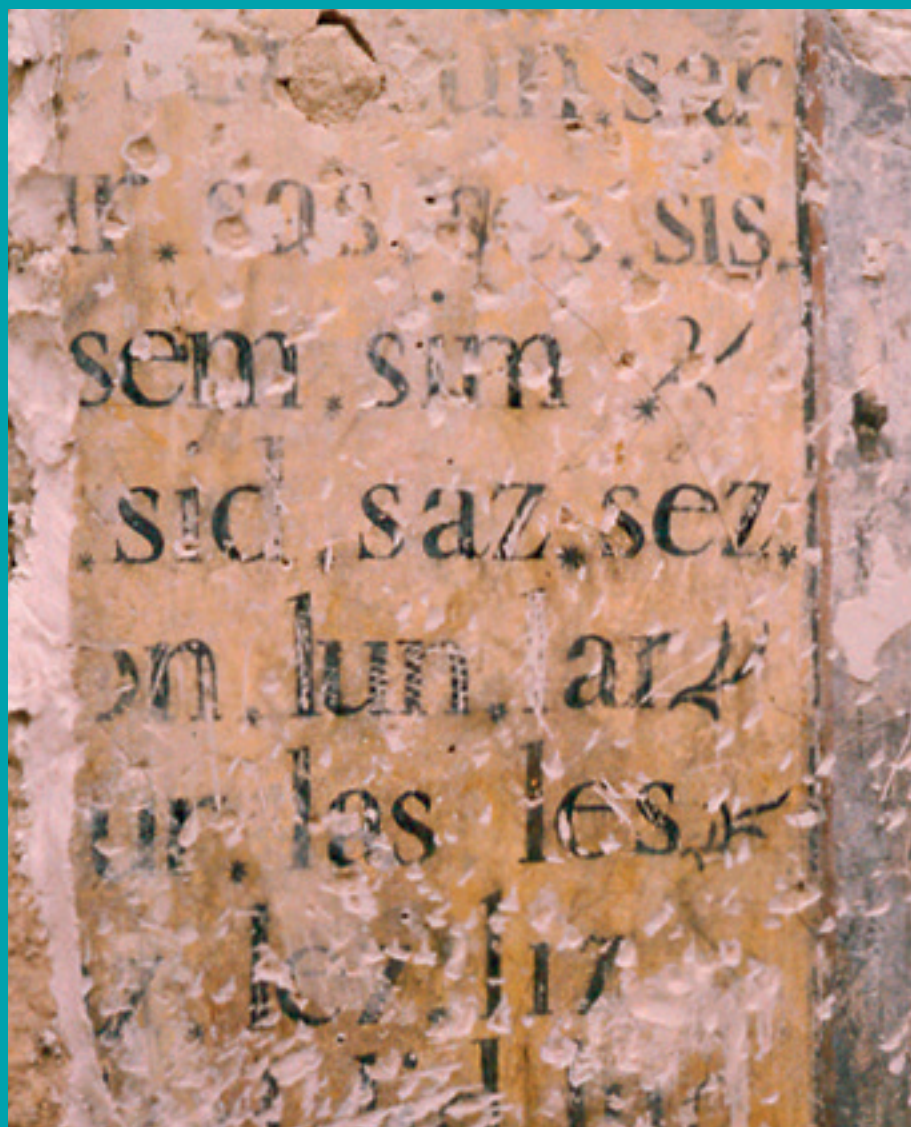 un. ser
sos. sis.
sem. sim
. sid. saz. sez.
on. lun. lar
ur. las les
lez. liz